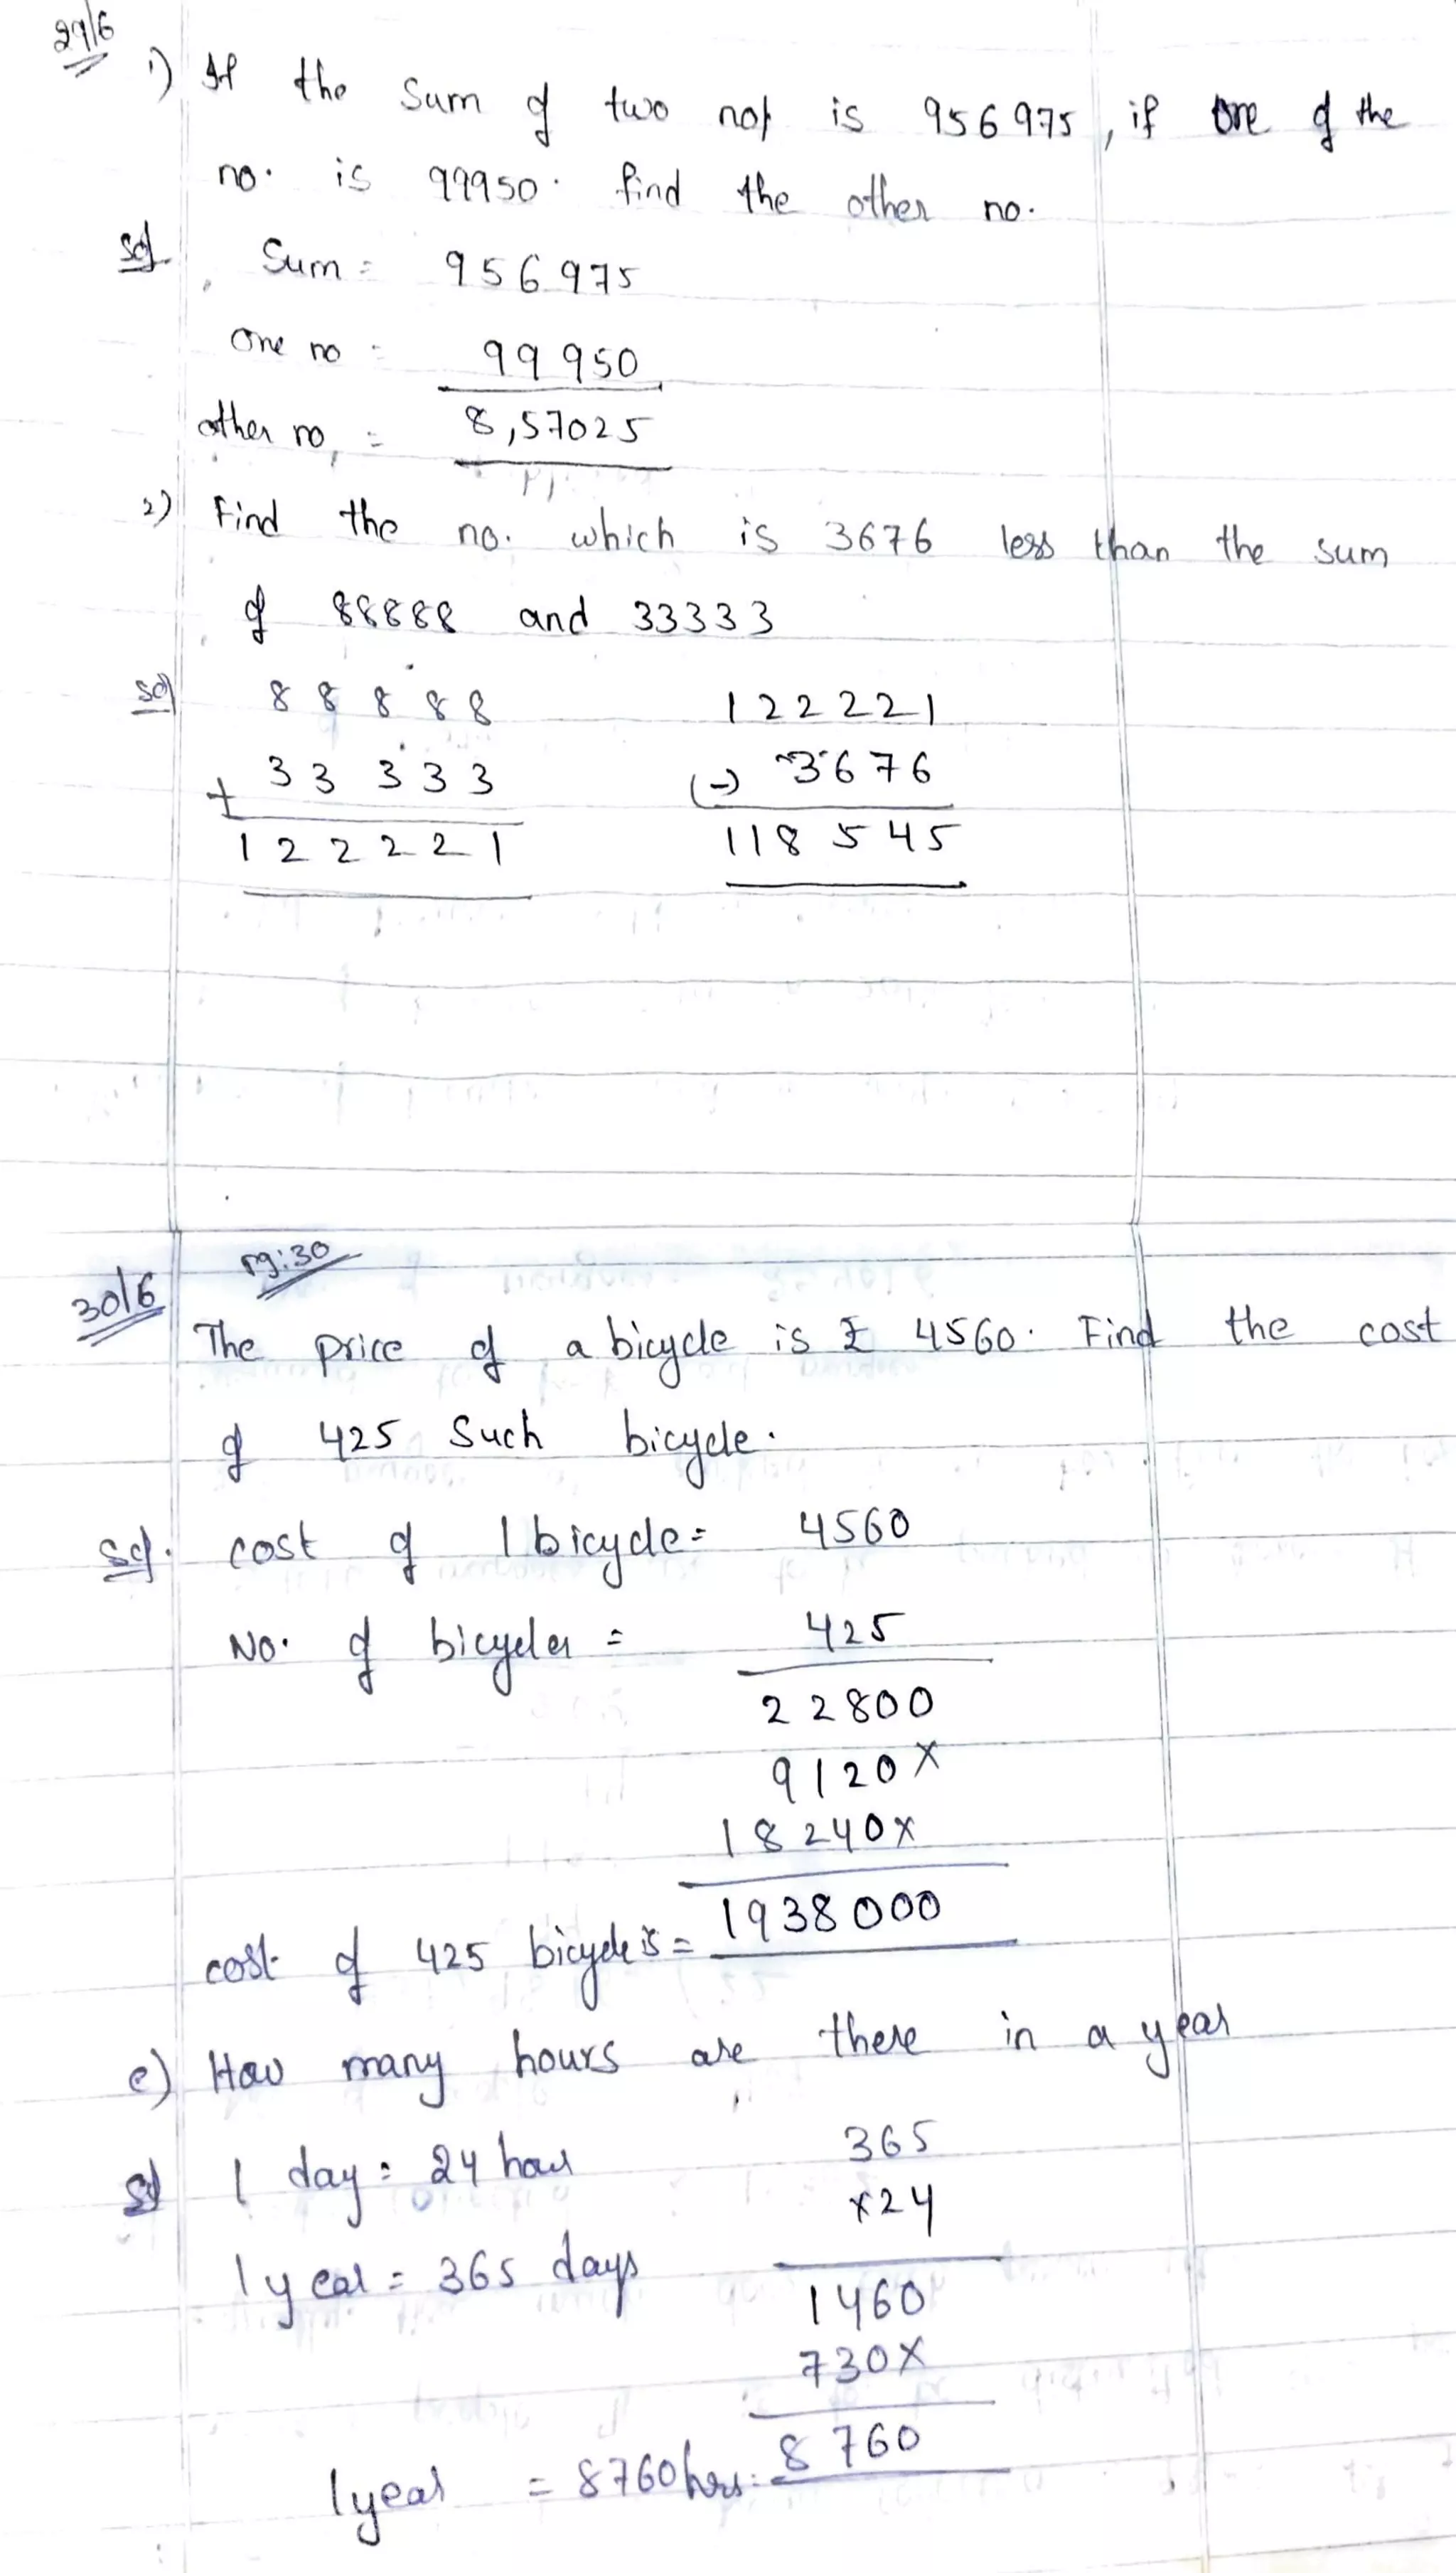 29/6
1) If the sum of two nos is 956975, if one of the
no. is 99950. find the other no.
Sol. Sum = 956975
One no = 99950
other no, = 8,57025
2) Find the no. which is 3676 less than the sum
of 88888 and 33333
Sol 88888 122221
+ 33333 (-) 3676
122221 118545
30/6 pg:30
The price of a bicycle is ₹ 4560. Find the cost
of 425 such bicycle.
Sol. cost of 1 bicycle = 4560
No. of bicycles = 425
22800
9120x
18240x
cost of 425 bicycle is = 1938000
e) How many hours are there in a year
Sol 1 day = 24 hour 365
x24
1 year = 365 days
1460
730x
8760
1 year = 8760 hrs.